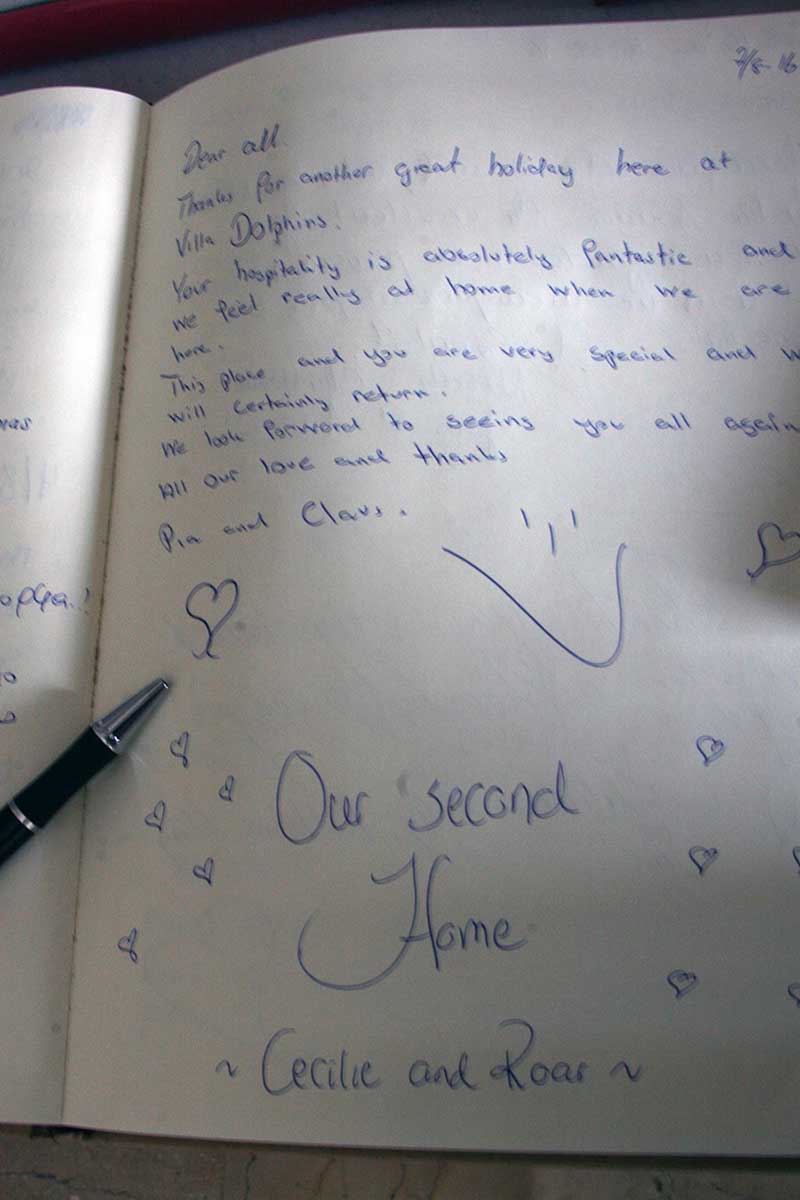 7/8-16
Dear all.
Thanks for another great holiday here at
Villa Dolphins!
Your hospitality is absolutely fantastic and
we feel really at home when we are
here.
This place and you are very special and w
will certainly return.
We look forward to seeing you all again
All our love and thanks
Pia and Claus.
Our second
Home
~ Cecilie and Roar ~